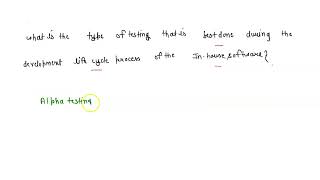 what is the type of testing that is best done during the
development life cycle process of the In-house software?
Alpha testing